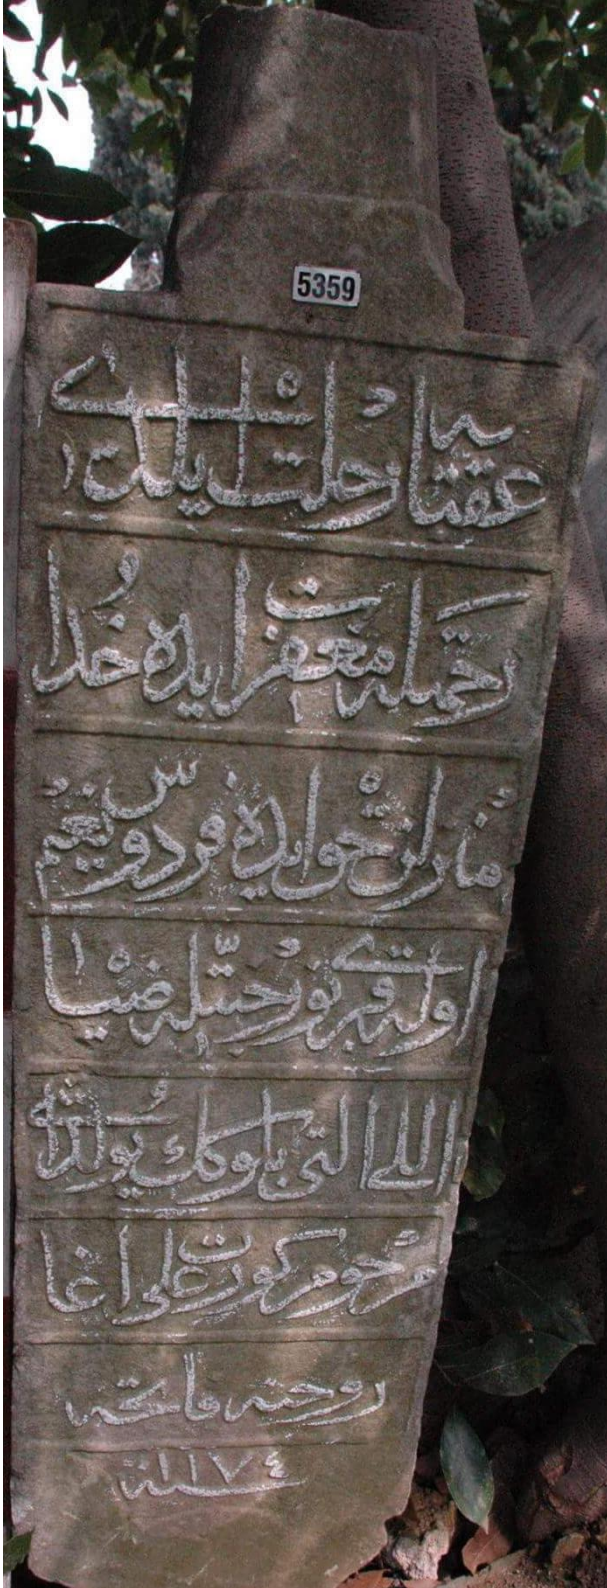 5359
عقبايه رحلت ايلدى
رحمتله مغفرت ايده خدا
منزلن جوايده فردوس نعيم
اوله قبرى نور حقله ضيا
اللى التى بلوكك يولداشى
مرحوم كورت على اغا
روحنه فاتحه
سنة ١١٧٤